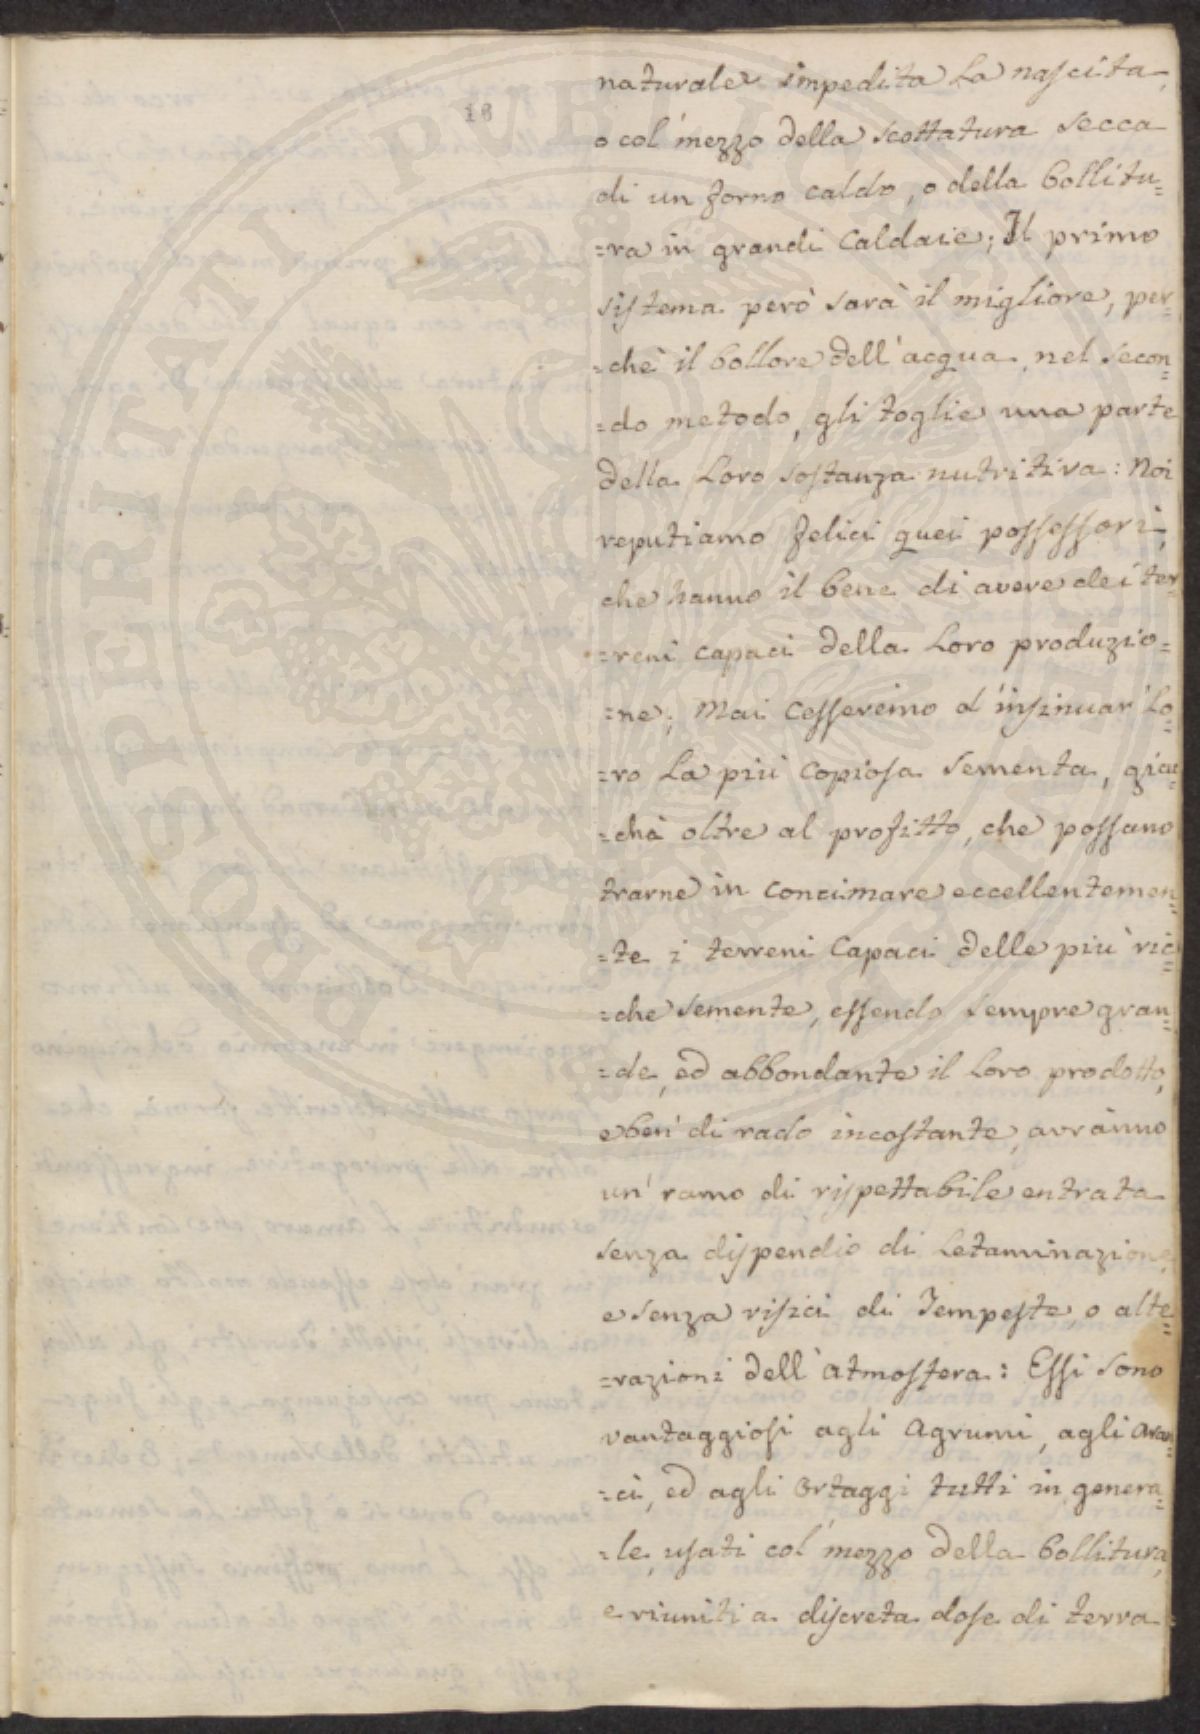 18
naturale impedita la nascita,
o col' mezzo della scottatura secca
di un forno caldo, o della bollitu=
=ra in grandi caldaie; Il primo
sistema però sarà il migliore, per=
=chè il bollore dell'acqua, nel secon=
=do metodo, gli toglie una parte
della loro sostanza nutritiva: Noi
reputiamo felici quei possessori,
che hanno il bene di avere dei ter=
=reni capaci della loro produzio=
=ne; Mai cesseremo d'insinuar' lo=
=ro la più copiosa sementa, giac=
=chà oltre al profitto, che possano
trarne in concimare eccellentemen=
=te i terreni capaci delle più ric=
=che semente, essendo sempre gran=
=de, ed abbondante il loro prodotto,
e ben' di rado incostante, avranno
un' ramo di rispettabile entrata
senza dispendio di letaminazione,
e senza risici di Tempeste, o alte=
=razioni dell'atmosfera: Essi sono
vantaggiosi agli Agrumi, agli Aran=
=ci, ed agli Ortaggi tutti in genera=
=le, usati col' mezzo della bollitura,
e riuniti a discreta dose di terra=
PROSPERITATI PVBLICAE